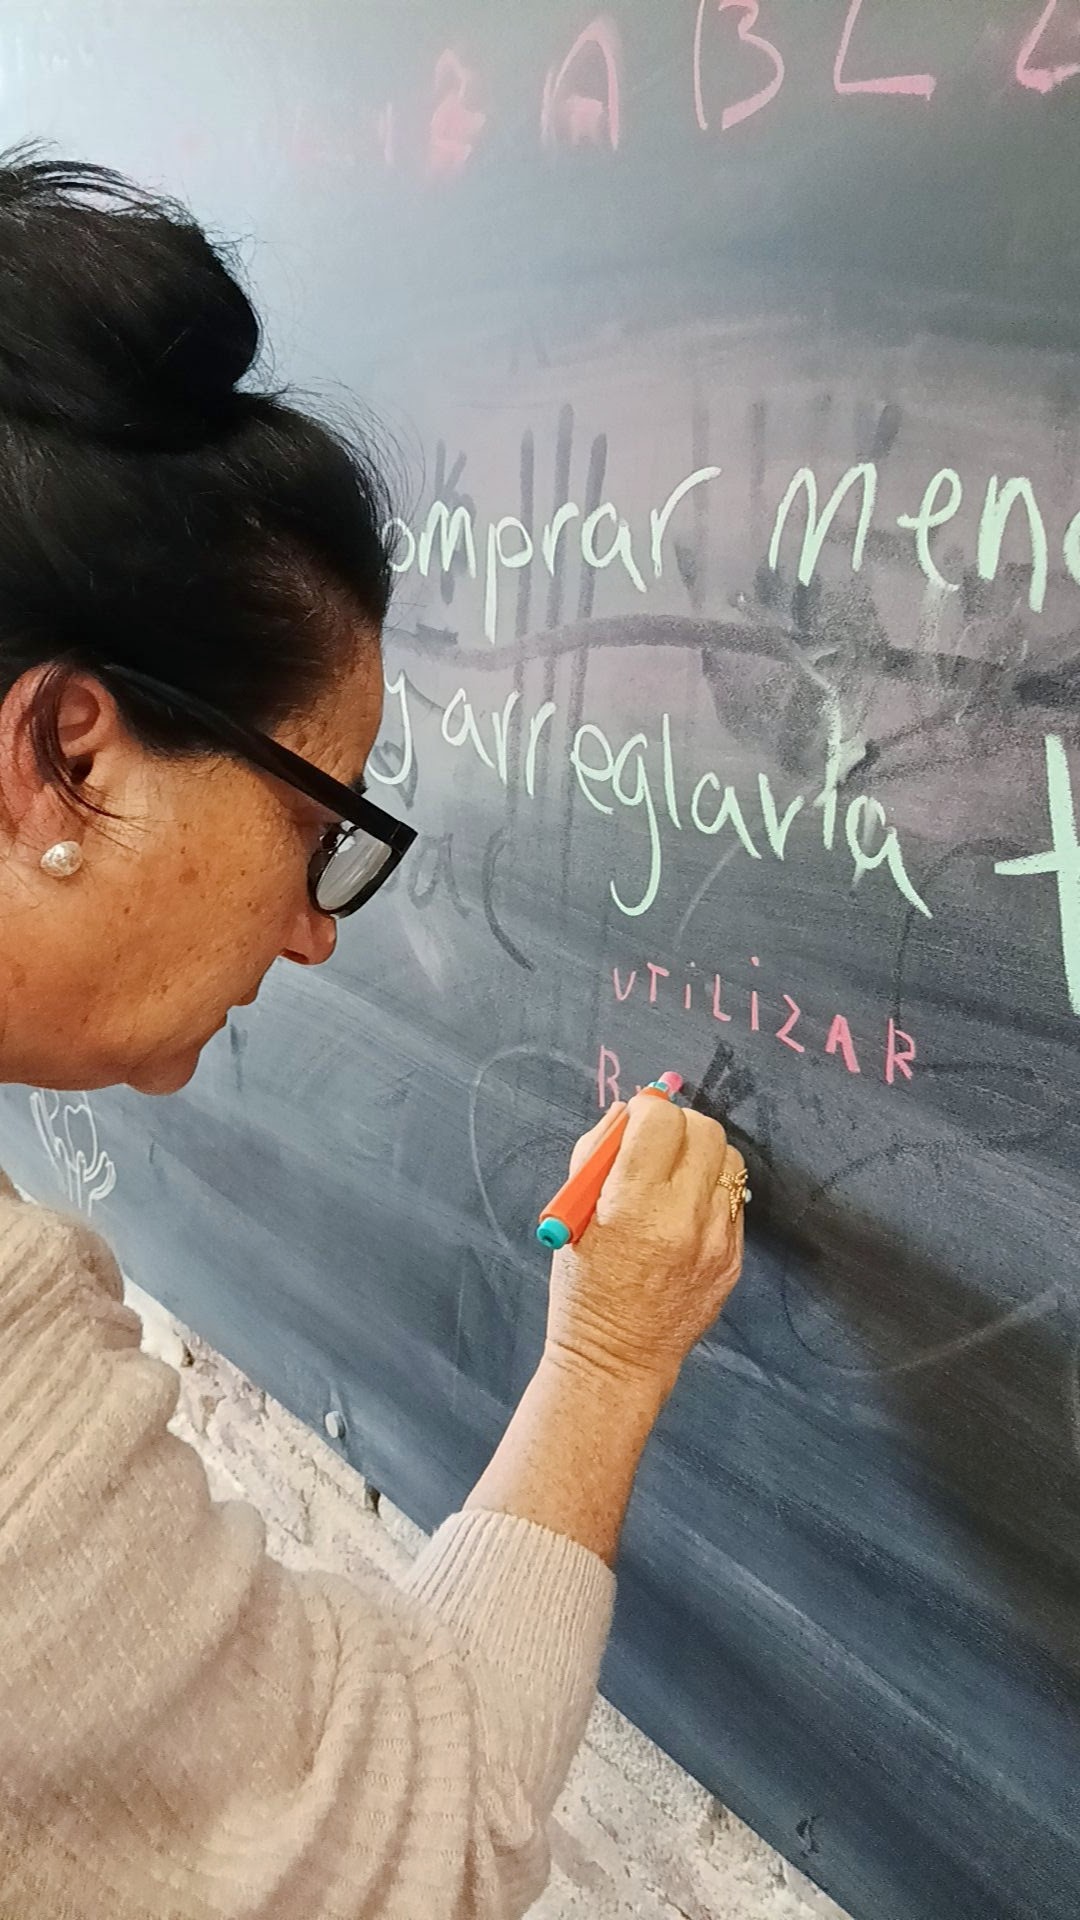 ABL
omprar men
y arreglarla +
UTILIZAR
R